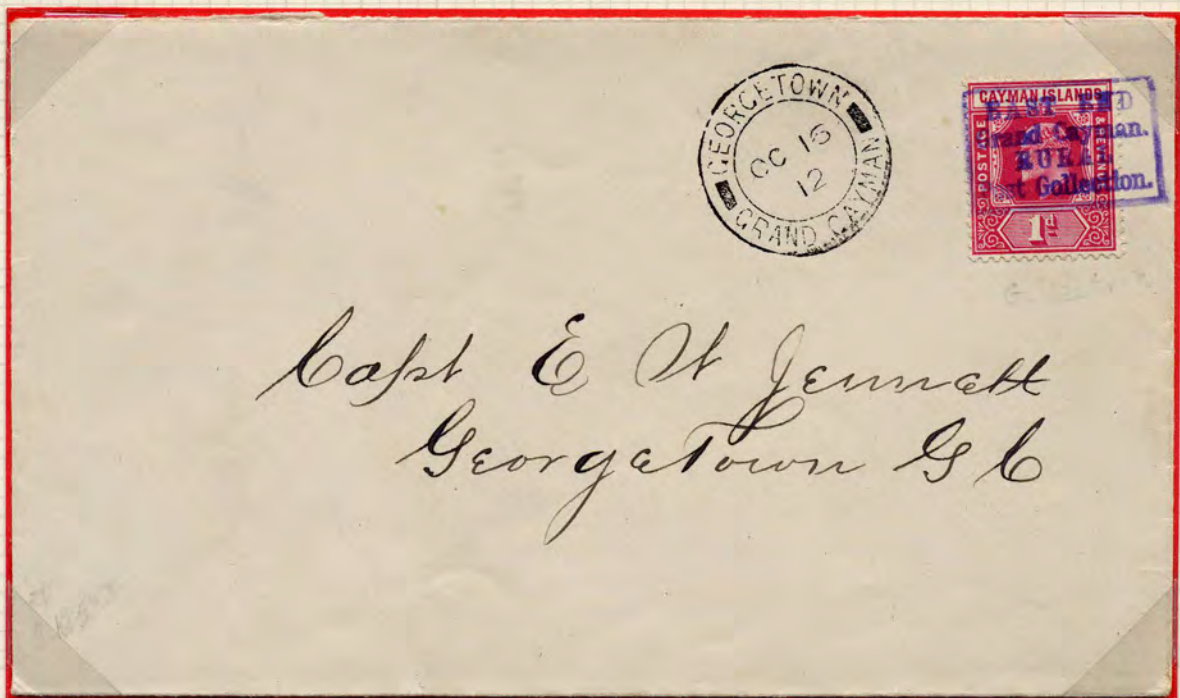 GEORGETOWN
OC 16
12
GRAND CAYMAN
CAYMAN ISLANDS
POSTAGE & REVENUE
1d
EAST END
Grand Cayman.
RURAL
Collection.
Capt E W Jennett
GeorgeTown G C